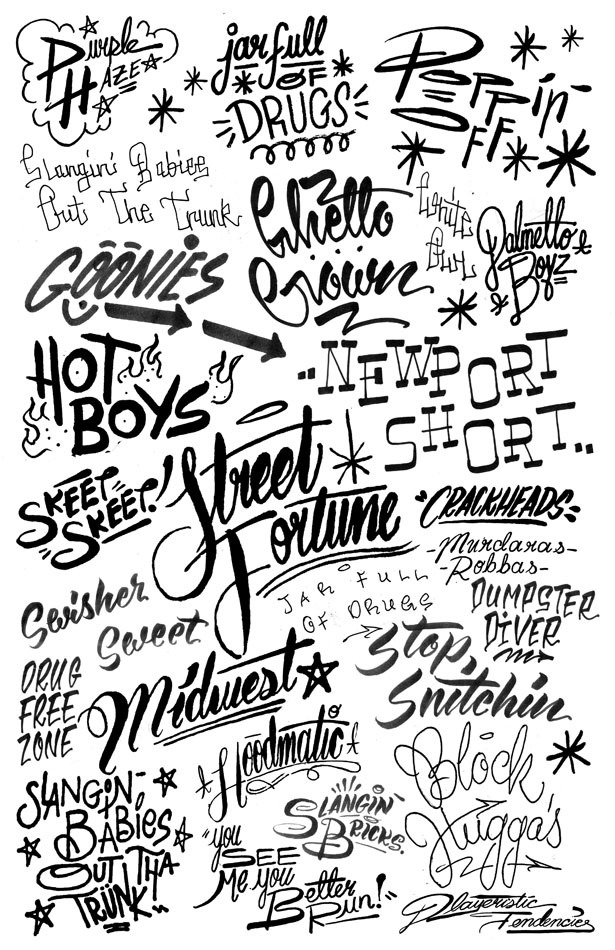 Purple
HAZE
jar full
OF
DRUGS
POPPIN'
OFF
Slangin' Babies
Out The Trunk
Ghetto
Grown
White
Out
Palmetto
Boyz
GOONIES
HOT
BOYS
"NEWPORT
SHORT..
SKEET
SKEET!
Street
Fortune
"CRACKHEADS"
-Murdaras-
-Robbas-
JAR FULL
OF DRUGS
DUMPSTER
DIVER
Swisher
Sweet
Stop,
Snitchin
DRUG
FREE
ZONE
Midwest
Hoodmatic
Block
Hugga's
SLANGIN'
BABIES
OUT THA
TRÜNK!!
SLANGIN'
BRICKS.
"you
SEE
Me you
Better
Run!"
Playeristic
Tendencies